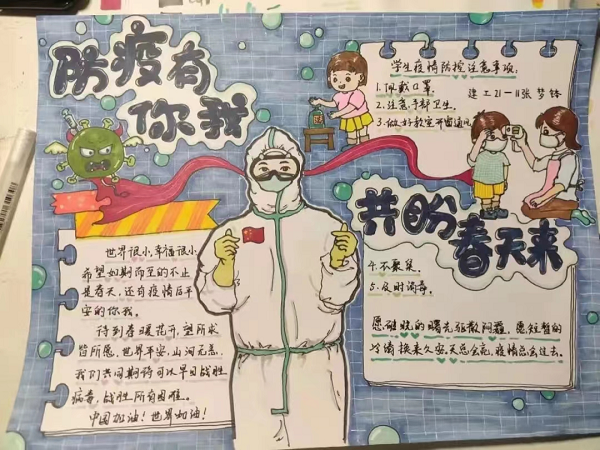 防疫有
你我
学生疫情防控注意事项:
1.佩戴口罩.
建工21-11张梦锋
2.注意手部卫生.
3.做好教室开窗通风
共盼
春天来
世界很小,幸福很小
希望如期而至的不止
是春天,还有疫情后平
安的你我。
待到春暖花开,望所求
皆所愿,世界平安,山河无恙,
我们共同期待可以早日战胜
病毒,战胜所有困难。
中国加油!世界加油!
4.不聚集.
5.及时消毒.
愿 的曙光驱散阴霾,愿短暂的
冷清换来久安,天总会亮,疫情总会过去.